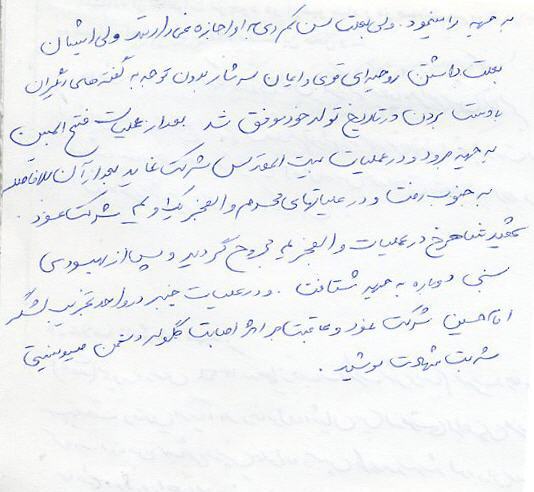 به جبهه را مینمود. ولی بعلت سن کم وی به او اجازه نمی‌دادند ولی ایشان
بعلت داشتن روحیه‌ای قوی و ایمان سرشار بدون توجه به گفته‌های دیگران
با دست بردن در تاریخ تولد خود موفق شد بعد از عملیات فتح المبین
به جبهه برود و در عملیات بیت المقدس شرکت نماید بعد از آن بلافاصله
به جنوب رفت و در عملیاتهای محرم و والفجر یک و شرکت نمود.
شهید شاهرخ در عملیات والفجر مجروح گردید و پس از بهبودی
نسبی دوباره به جبهه شتافت. و در عملیات خیبر در واحد تخریب لشگر
امام حسین شرکت نمود و عاقبت بر اثر اصابت گلوله دشمن صهیونیستی
شربت شهادت نوشید.